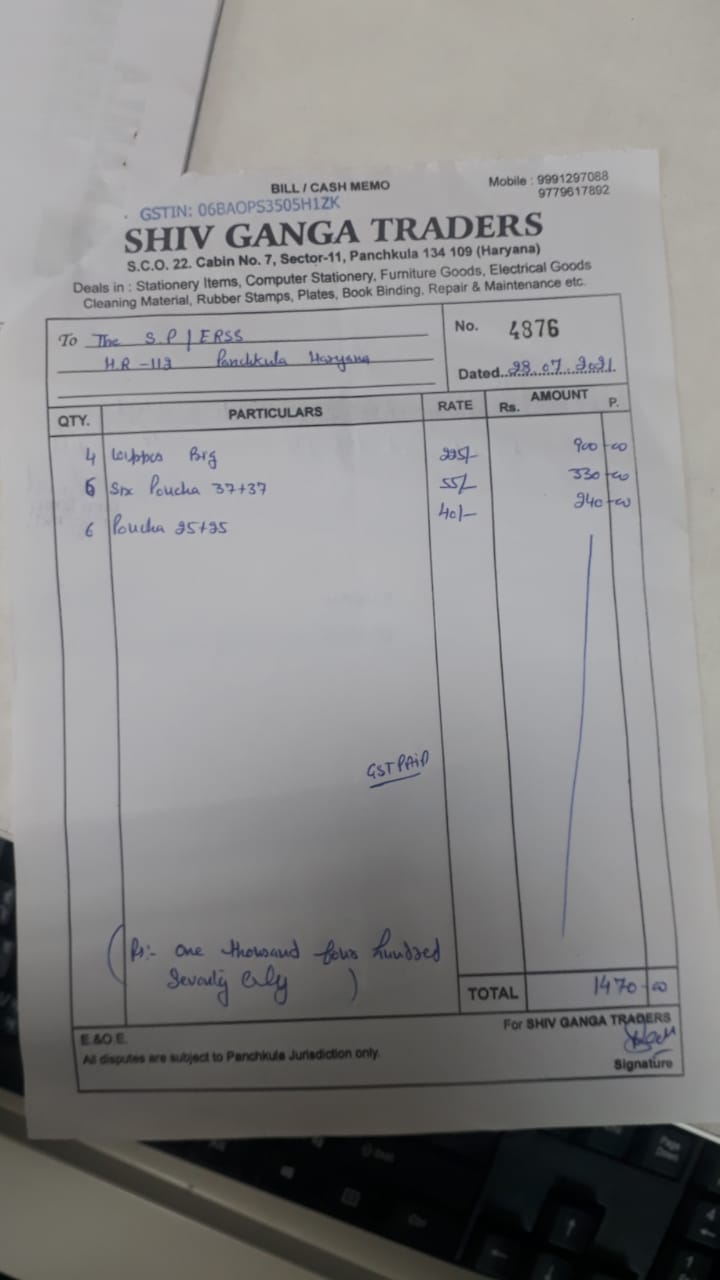 BILL / CASH MEMO
Mobile : 9991297088
9779617892
GSTIN: 06BAOPS3505H1ZK
SHIV GANGA TRADERS
S.C.O. 22. Cabin No. 7, Sector-11, Panchkula 134 109 (Haryana)
Deals in : Stationery Items, Computer Stationery, Furniture Goods, Electrical Goods
Cleaning Material, Rubber Stamps, Plates, Book Binding, Repair & Maintenance etc.
To The S.P / ERSS
H.R -112 Panchkula Haryana
No. 4876
Dated..28.07.2021
QTY. PARTICULARS RATE AMOUNT
Rs. P.
4 225/- 900-00
6 Poucha 37+37 55/- 330-00
6 Poucha 25+25 40/- 240-00
GST PAID
(Rs:- One thousand four hundred
Seventy only )
TOTAL 1470-00
E.&O.E.
For SHIV GANGA TRADERS
All disputes are subject to Panchkula Jurisdiction only.
Signature